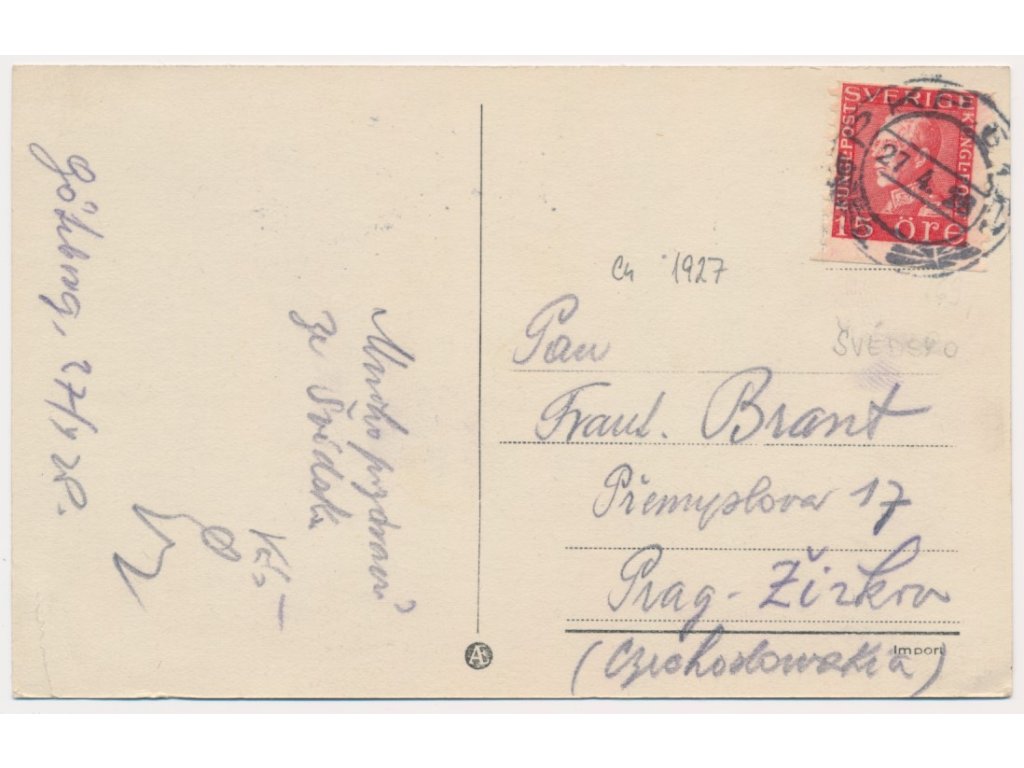 Göteborg, 27/4 28.
Mnoho pozdravů
ze Švédska
Váš
SVERIGE
KUNGL. POST
15 ÖRE
27. 4. 28
Ch 1927
ŠVÉDSKO
Pan
Frant. Brant
Přemyslova 17
Prag - Žižkov
(Czechoslowakia)
Import
A